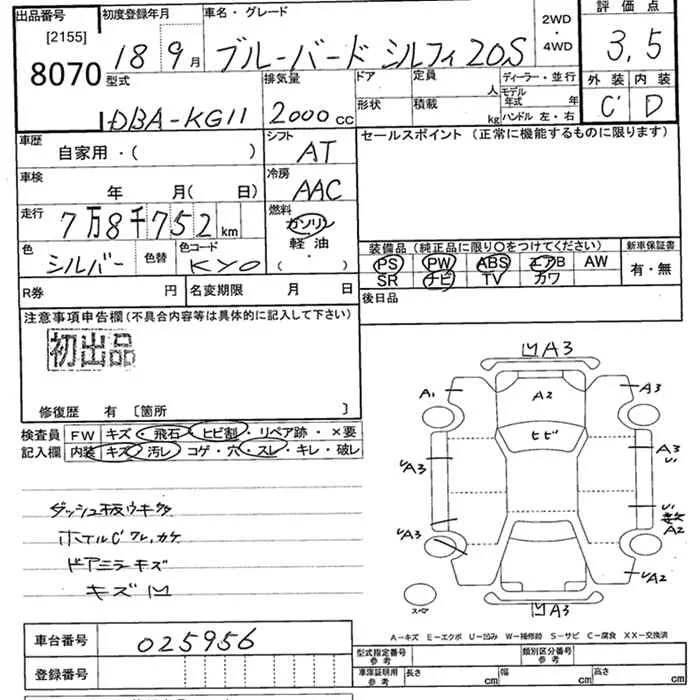 出品番号 初度登録年月 車名・グレード 2WD・4WD 評価点
[2155]
8070 18 9月 ブルーバード シルフィ 20S 3,5
型式 排気量 ドア 定員 人 ディーラー・並行 外装 内装
DBA-KG11 2000cc 形状 積載 kg モデル年式 年 C' D
ハンドル 左・右
車歴 自家用・( ) シフト AT セールスポイント(正常に機能するものに限ります)
車検 年 月( 日) 冷房 AAC
走行 7万8千752km 燃料 ガソリン 軽油 ( ・ )
色 シルバー 色替 色コード KY0
装備品(純正品に限り○をつけてください) 新車保証書
PS PW ABS エアB AW 有・無
SR ナビ TV カワ
R券 円 名変期限 月 日 後日品
注意事項申告欄(不具合内容等は具体的に記入して下さい)
初出品
修復歴 有 [箇所 ]
検査員 FW キズ・飛石・ヒビ割・リペア跡・×要
記入欄 内装 キズ・汚し・コゲ・穴・スレ・キレ・破レ
ホイルC
ドアミラキズ
キズ凹
凹A3
A1 A2 A3
ヒビ
A3 A3
A3 A2
A2
スペア 凹A3
A-キズ E-エクボ U-凹み W-補修跡 S-サビ C-腐食 XX-交換済
車台番号 025956
登録番号
型式指定番号 参考 類別区分番号 参考
車庫証明用 参考 長さ cm 幅 cm 高さ cm